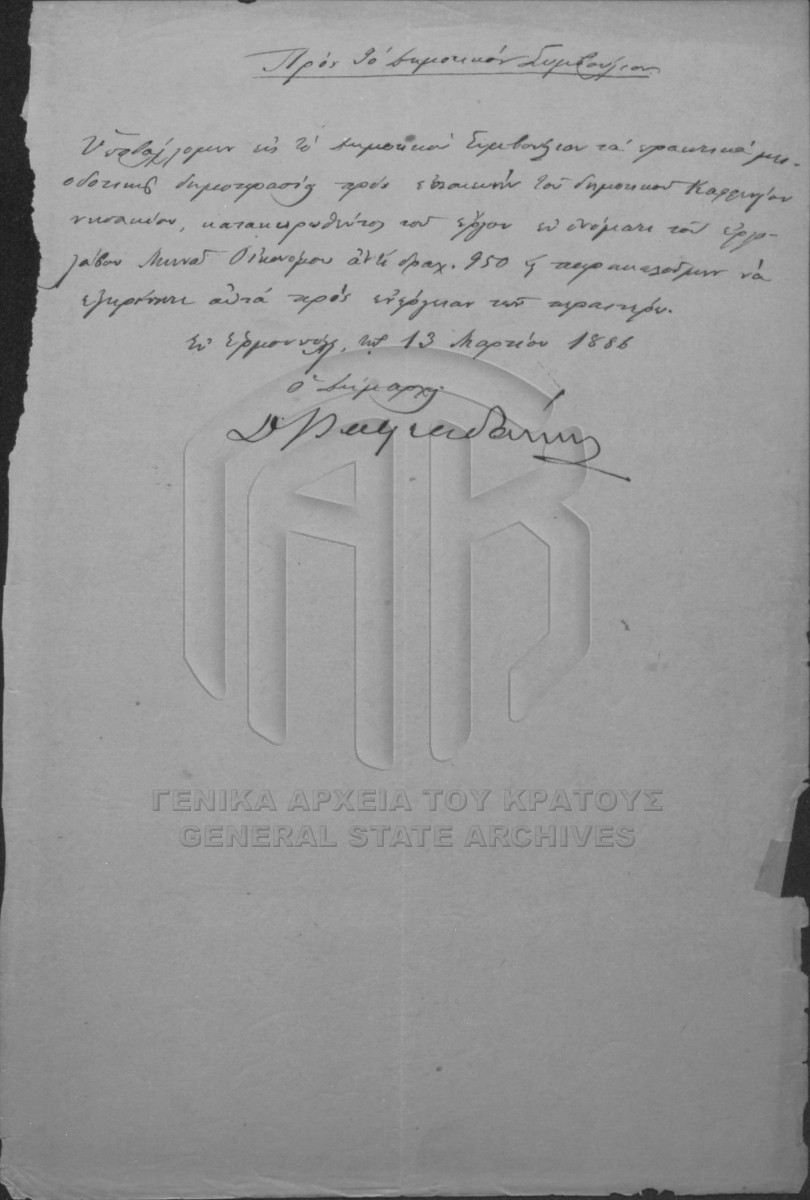 Πρὸς τὸ Δημοτικὸν Συμβούλιον
Ὑποβάλλομεν εἰς τὸ Δημοτικὸν Συμβούλιον τὰ πρακτικὰ μει-
οδοτικῆς δημοπρασίας πρὸς ἐπισκευὴν τοῦ δημοτικοῦ
κατακυρωθέντος τοῦ ἔργου ἐν ὀνόματι τοῦ ἐργο-
λάβου Μηνᾶ Οἰκονόμου ἀντὶ δραχ. 950 παρακαλοῦμεν νὰ
ἐγκρίνητε αὐτὰ πρὸς ἐνέργειαν τῶν περαιτέρω.
Ἐν Ἑρμουπόλει, τῇ 13 Μαρτίου 1886
ὁ Δήμαρχος
ΓΕΝΙΚΑ ΑΡΧΕΙΑ ΤΟΥ ΚΡΑΤΟΥΣ
GENERAL STATE ARCHIVES